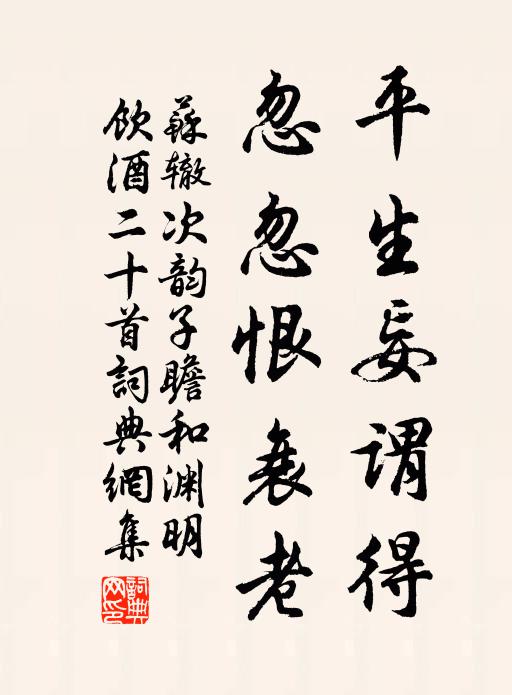 平生妄谓得
忽忽恨衰老
蘇辙次韵子瞻和渊明
飲酒二十首詞典網集
詞典
网印